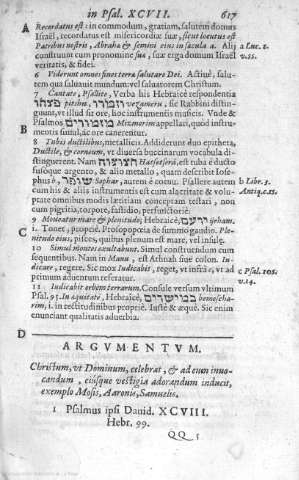 in Psal. XCVII. 617
A Recordatus est: in commodum, gratiam, salutem domus
Israël, recordatus est misericordiæ suæ, sicut locutus est
Patribus nostris, Abrahæ & semini eius in sæcula a. Alij a Luc. 1.
construunt cum pronomine sua, suæ erga domum Israel v. 55.
veritatis, & fidei.
6 Viderunt omnes fines terræ salutare Dei. Actiuè, salu-
tem qua saluauit mundum: vel saluatorem Christum.
7 Cantate, Psallite, Verba his Hebraicè respondentia
פצחו pitschu, וזמרו vezameru, sic Rabbini distin-
guunt, vt illud sit ore, hoc instrumentis musicis. Vnde &
Psalmos מזמורים Mizmorim appellari, quòd instrumen-
B
tis musicis simul, ac ore canerentur.
8 Tubis ductilibus, metallicis. Addiderunt duo epitheta,
Ductile, & corneum, vt diuersa buccinarum vocabula di-
stinguerent. Nam חצוצרה Hatsotsra, est tuba è ductu
fusoque argento, & alio metallo, quam describit Iose-
phus b, שופר Sophar, autem è cornu. Psallere autem b Libr. 3.
cum his & aliis instrumentis est cum alacritate & volu- Antiq. c. 11.
ptate omnibus modis lætitiam conceptam testari, non
cum pigritia, torpore, fastidio, perfunctoriè.
9 Moueatur mare & plenitudo; Hebraicè ירעם
C i. Tonet, propriè. Prosopopœia de summo gaudio. Ple-
nitudo eius, pisces, quibus plenum est mare, vel insulæ.
10 Simul montes exultabunt. Simul construendum cum
sequentibus. Nam in Manu, est Athnah siue colon. Iu-
dicare, regere. Sic mox Iudicabit, reget, vt infrà c, vt ad c Psal. 105.
primum aduentum referatur. v. 14.
11 Iudicabit orbem terrarum. Consule versum vltimum
Psal. 95. In æquitate, Hebraicè, במישרים bemescha-
rim, i. in rectitudinibus propriè. Iustè & æquè. Sic enim
enunciant qualitatis aduerbia.
D
ARGVMENTVM.
Christum, vt Dominum, celebrat, & ad eum inuo-
candum, eiúsque vestigia adorandum inducit,
exemplo Mosis, Aaronis, Samuelis.
1 Psalmus ipsi Dauid. XCVIII.
Hebr. 99.
QQ 1